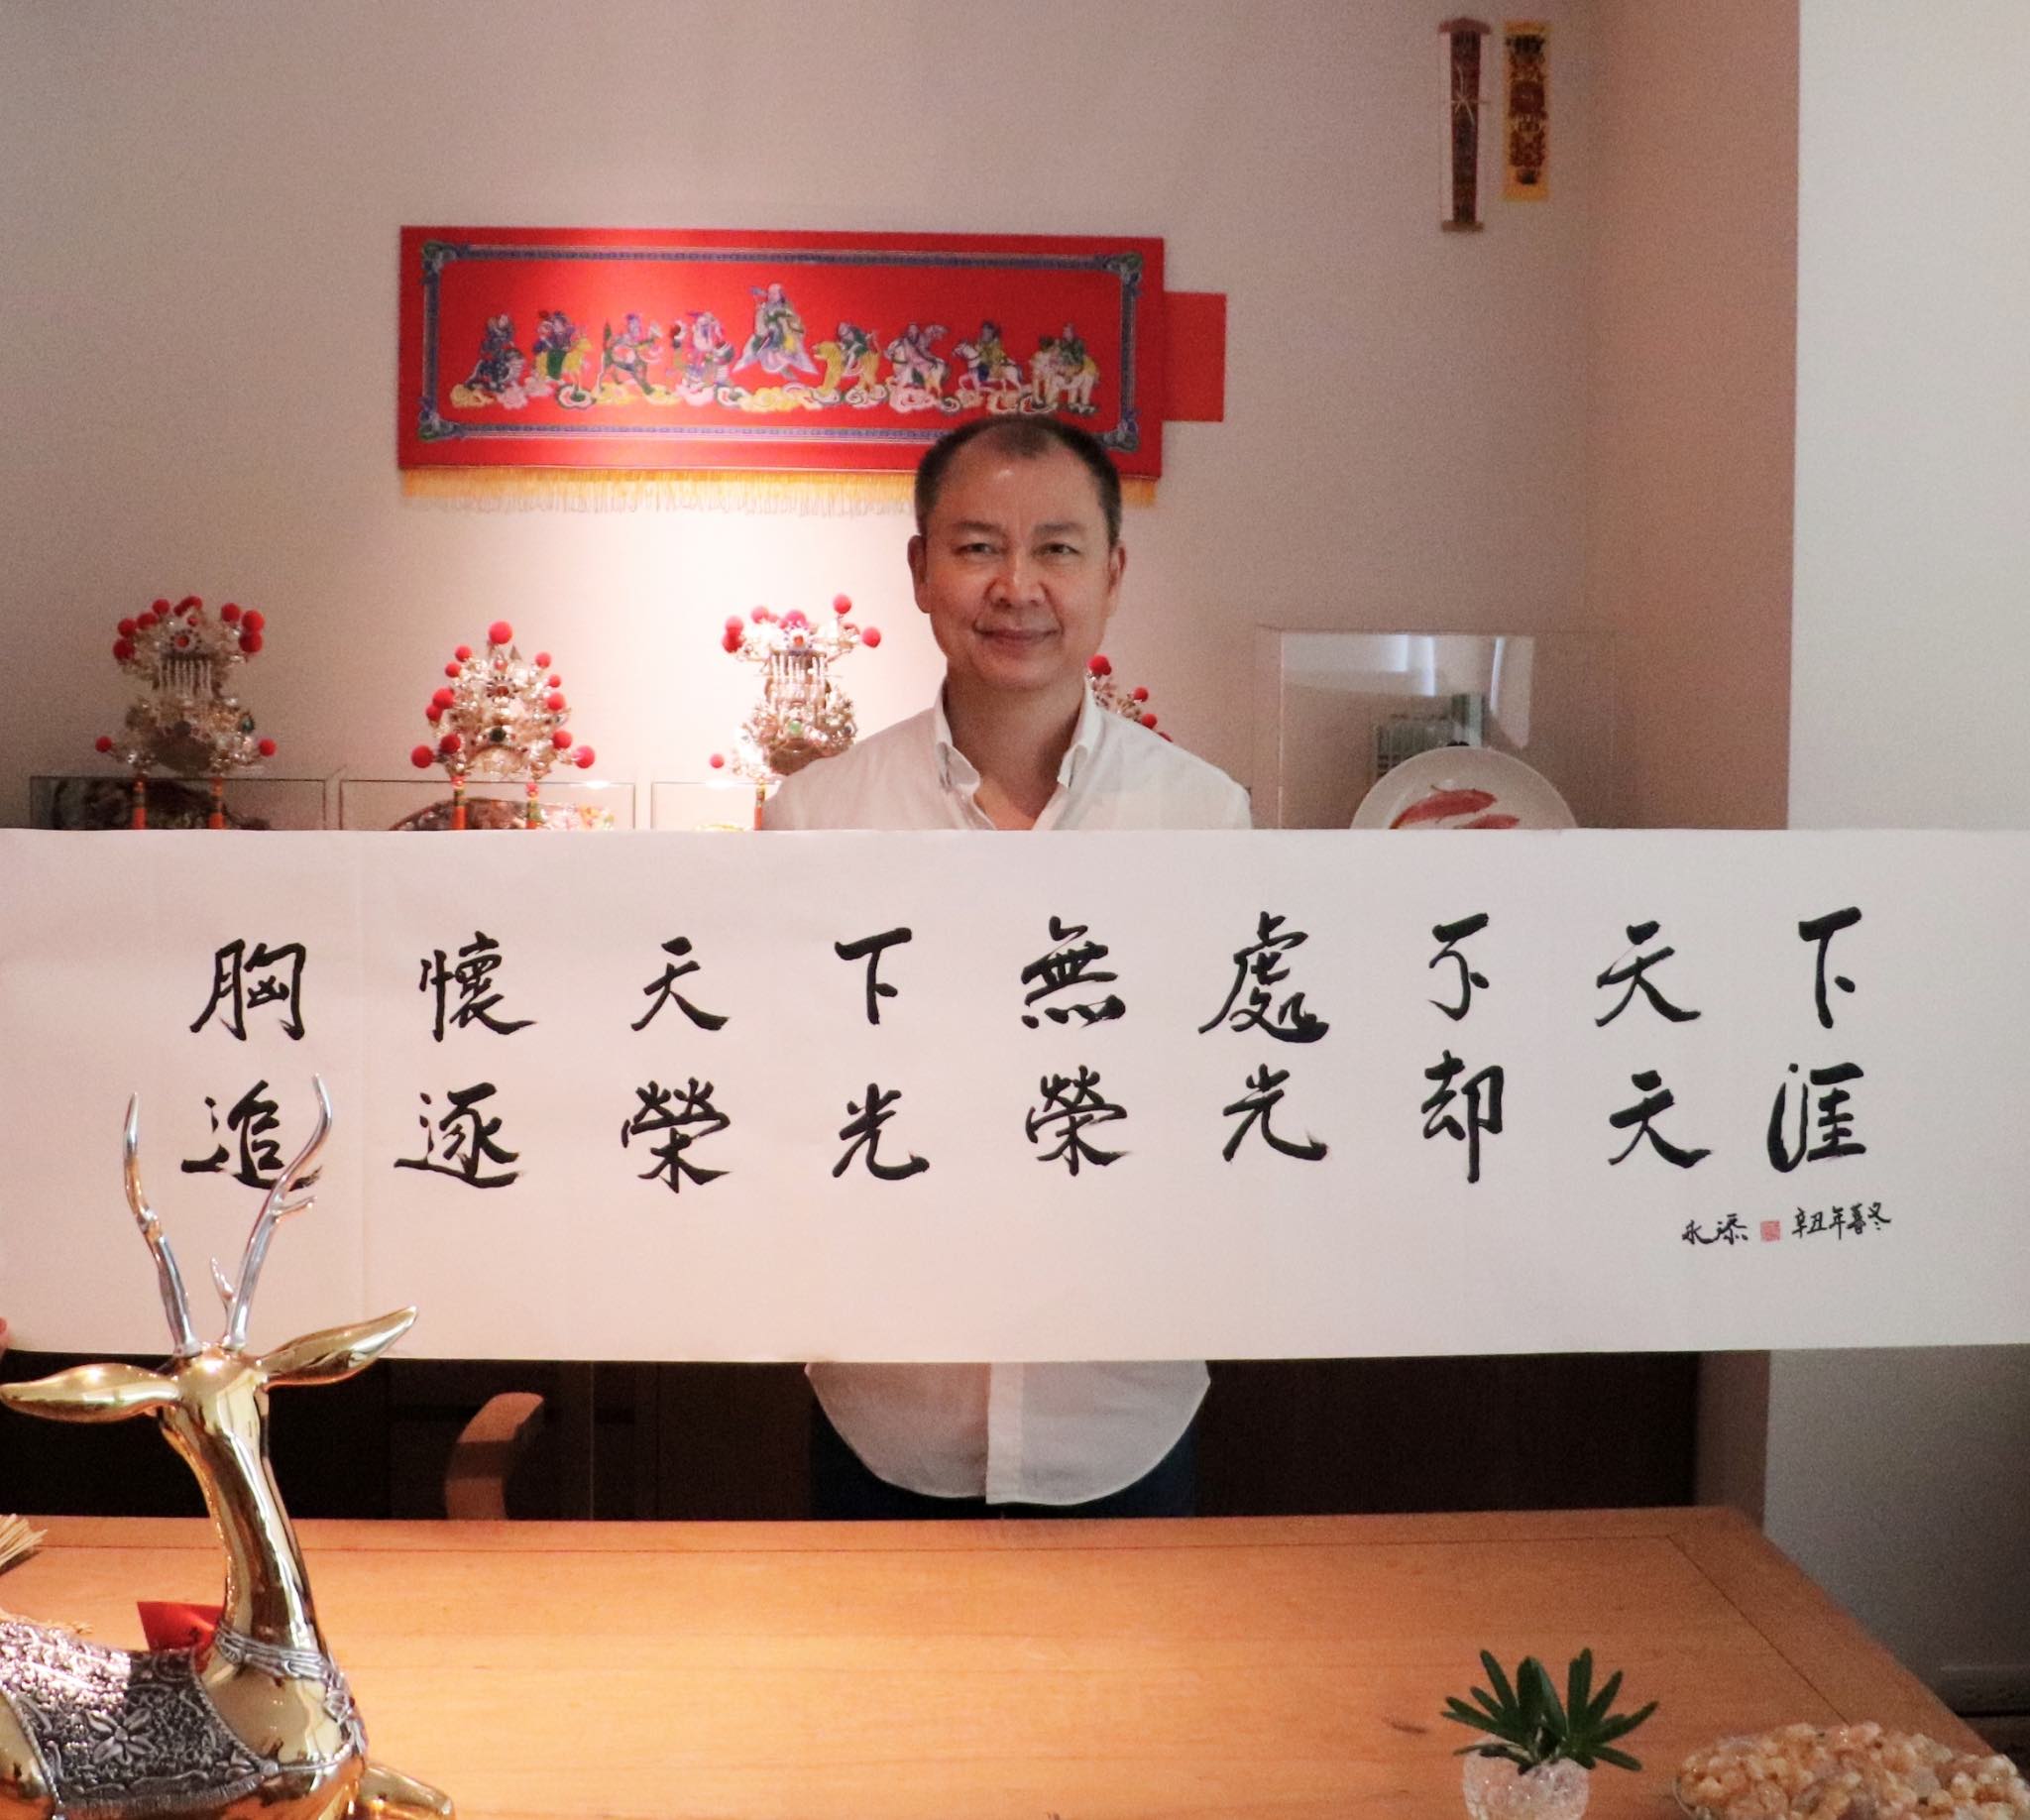 胸懷天下無處不天下
追逐榮光榮光却天涯
永添 辛丑年暮冬